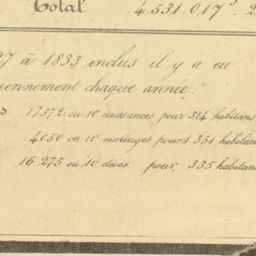 Total 4.531.017
27 à 1833 inclus il y a eu
ennement chaque année:
17372 ou 10 naissances pour 314 habitans
4050 ou 10 mariages pour 351 habitans
16.275 ou 10 décès pour 335 habitans